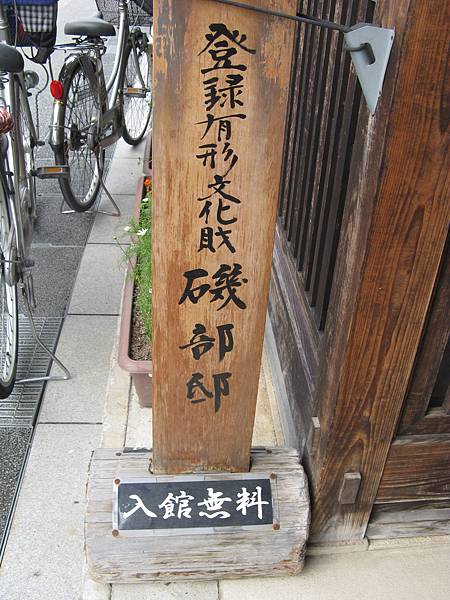 登録有形文化財磯部邸
入館無料